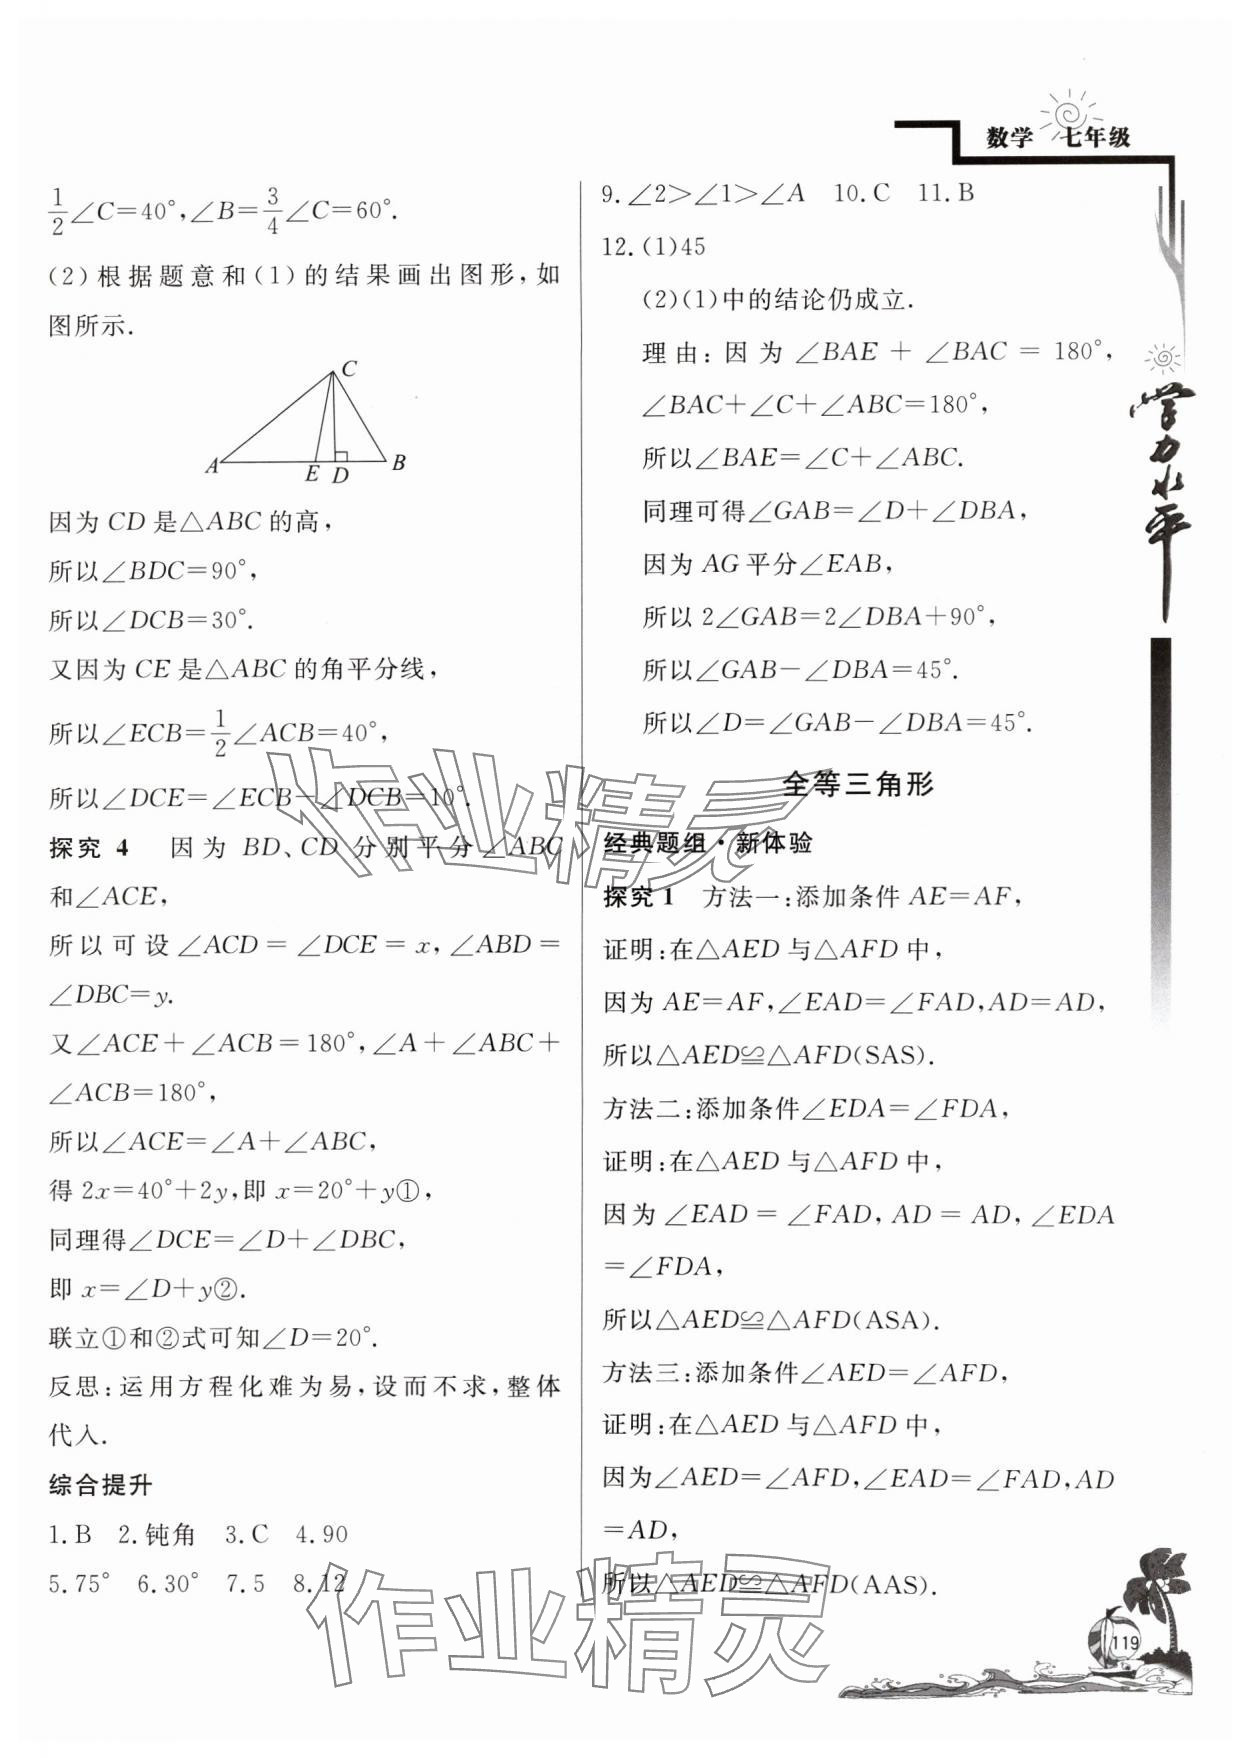 数学 七年级
1/2∠C=40°,∠B=3/4∠C=60°.
(2)根据题意和(1)的结果画出图形,如
图所示.
C
A
E
D
B
因为 CD 是△ABC 的高,
所以∠BDC=90°,
所以∠DCB=30°.
又因为 CE 是△ABC 的角平分线,
所以∠ECB=1/2∠ACB=40°,
所以∠DCE=∠ECB-∠DCB=10°.
探究 4 因为 BD、CD 分别平分∠ABC
和∠ACE,
所以可设∠ACD=∠DCE=x,∠ABD=
∠DBC=y.
又∠ACE+∠ACB=180°,∠A+∠ABC+
∠ACB=180°,
所以∠ACE=∠A+∠ABC,
得 2x=40°+2y,即 x=20°+y①,
同理得∠DCE=∠D+∠DBC,
即 x=∠D+y②.
联立①和②式可知∠D=20°.
反思:运用方程化难为易,设而不求,整体
代入.
综合提升
1.B 2.钝角 3.C 4.90
5.75° 6.30° 7.5 8.12
9.∠2>∠1>∠A 10.C 11.B
12.(1)45
(2)(1)中的结论仍成立.
理由:因为∠BAE+∠BAC=180°,
∠BAC+∠C+∠ABC=180°,
所以∠BAE=∠C+∠ABC.
同理可得∠GAB=∠D+∠DBA,
因为 AG 平分∠EAB,
所以 2∠GAB=2∠DBA+90°,
所以∠GAB-∠DBA=45°.
所以∠D=∠GAB-∠DBA=45°.
全等三角形
经典题组·新体验
探究 1 方法一:添加条件 AE=AF,
证明:在△AED 与△AFD 中,
因为 AE=AF,∠EAD=∠FAD,AD=AD,
所以△AED≌△AFD(SAS).
方法二:添加条件∠EDA=∠FDA,
证明:在△AED 与△AFD 中,
因为∠EAD=∠FAD,AD=AD,∠EDA
=∠FDA,
所以△AED≌△AFD(ASA).
方法三:添加条件∠AED=∠AFD,
证明:在△AED 与△AFD 中,
因为∠AED=∠AFD,∠EAD=∠FAD,AD
=AD,
所以△AED≌△AFD(AAS).
学力水平
119
作业精灵
作业精灵